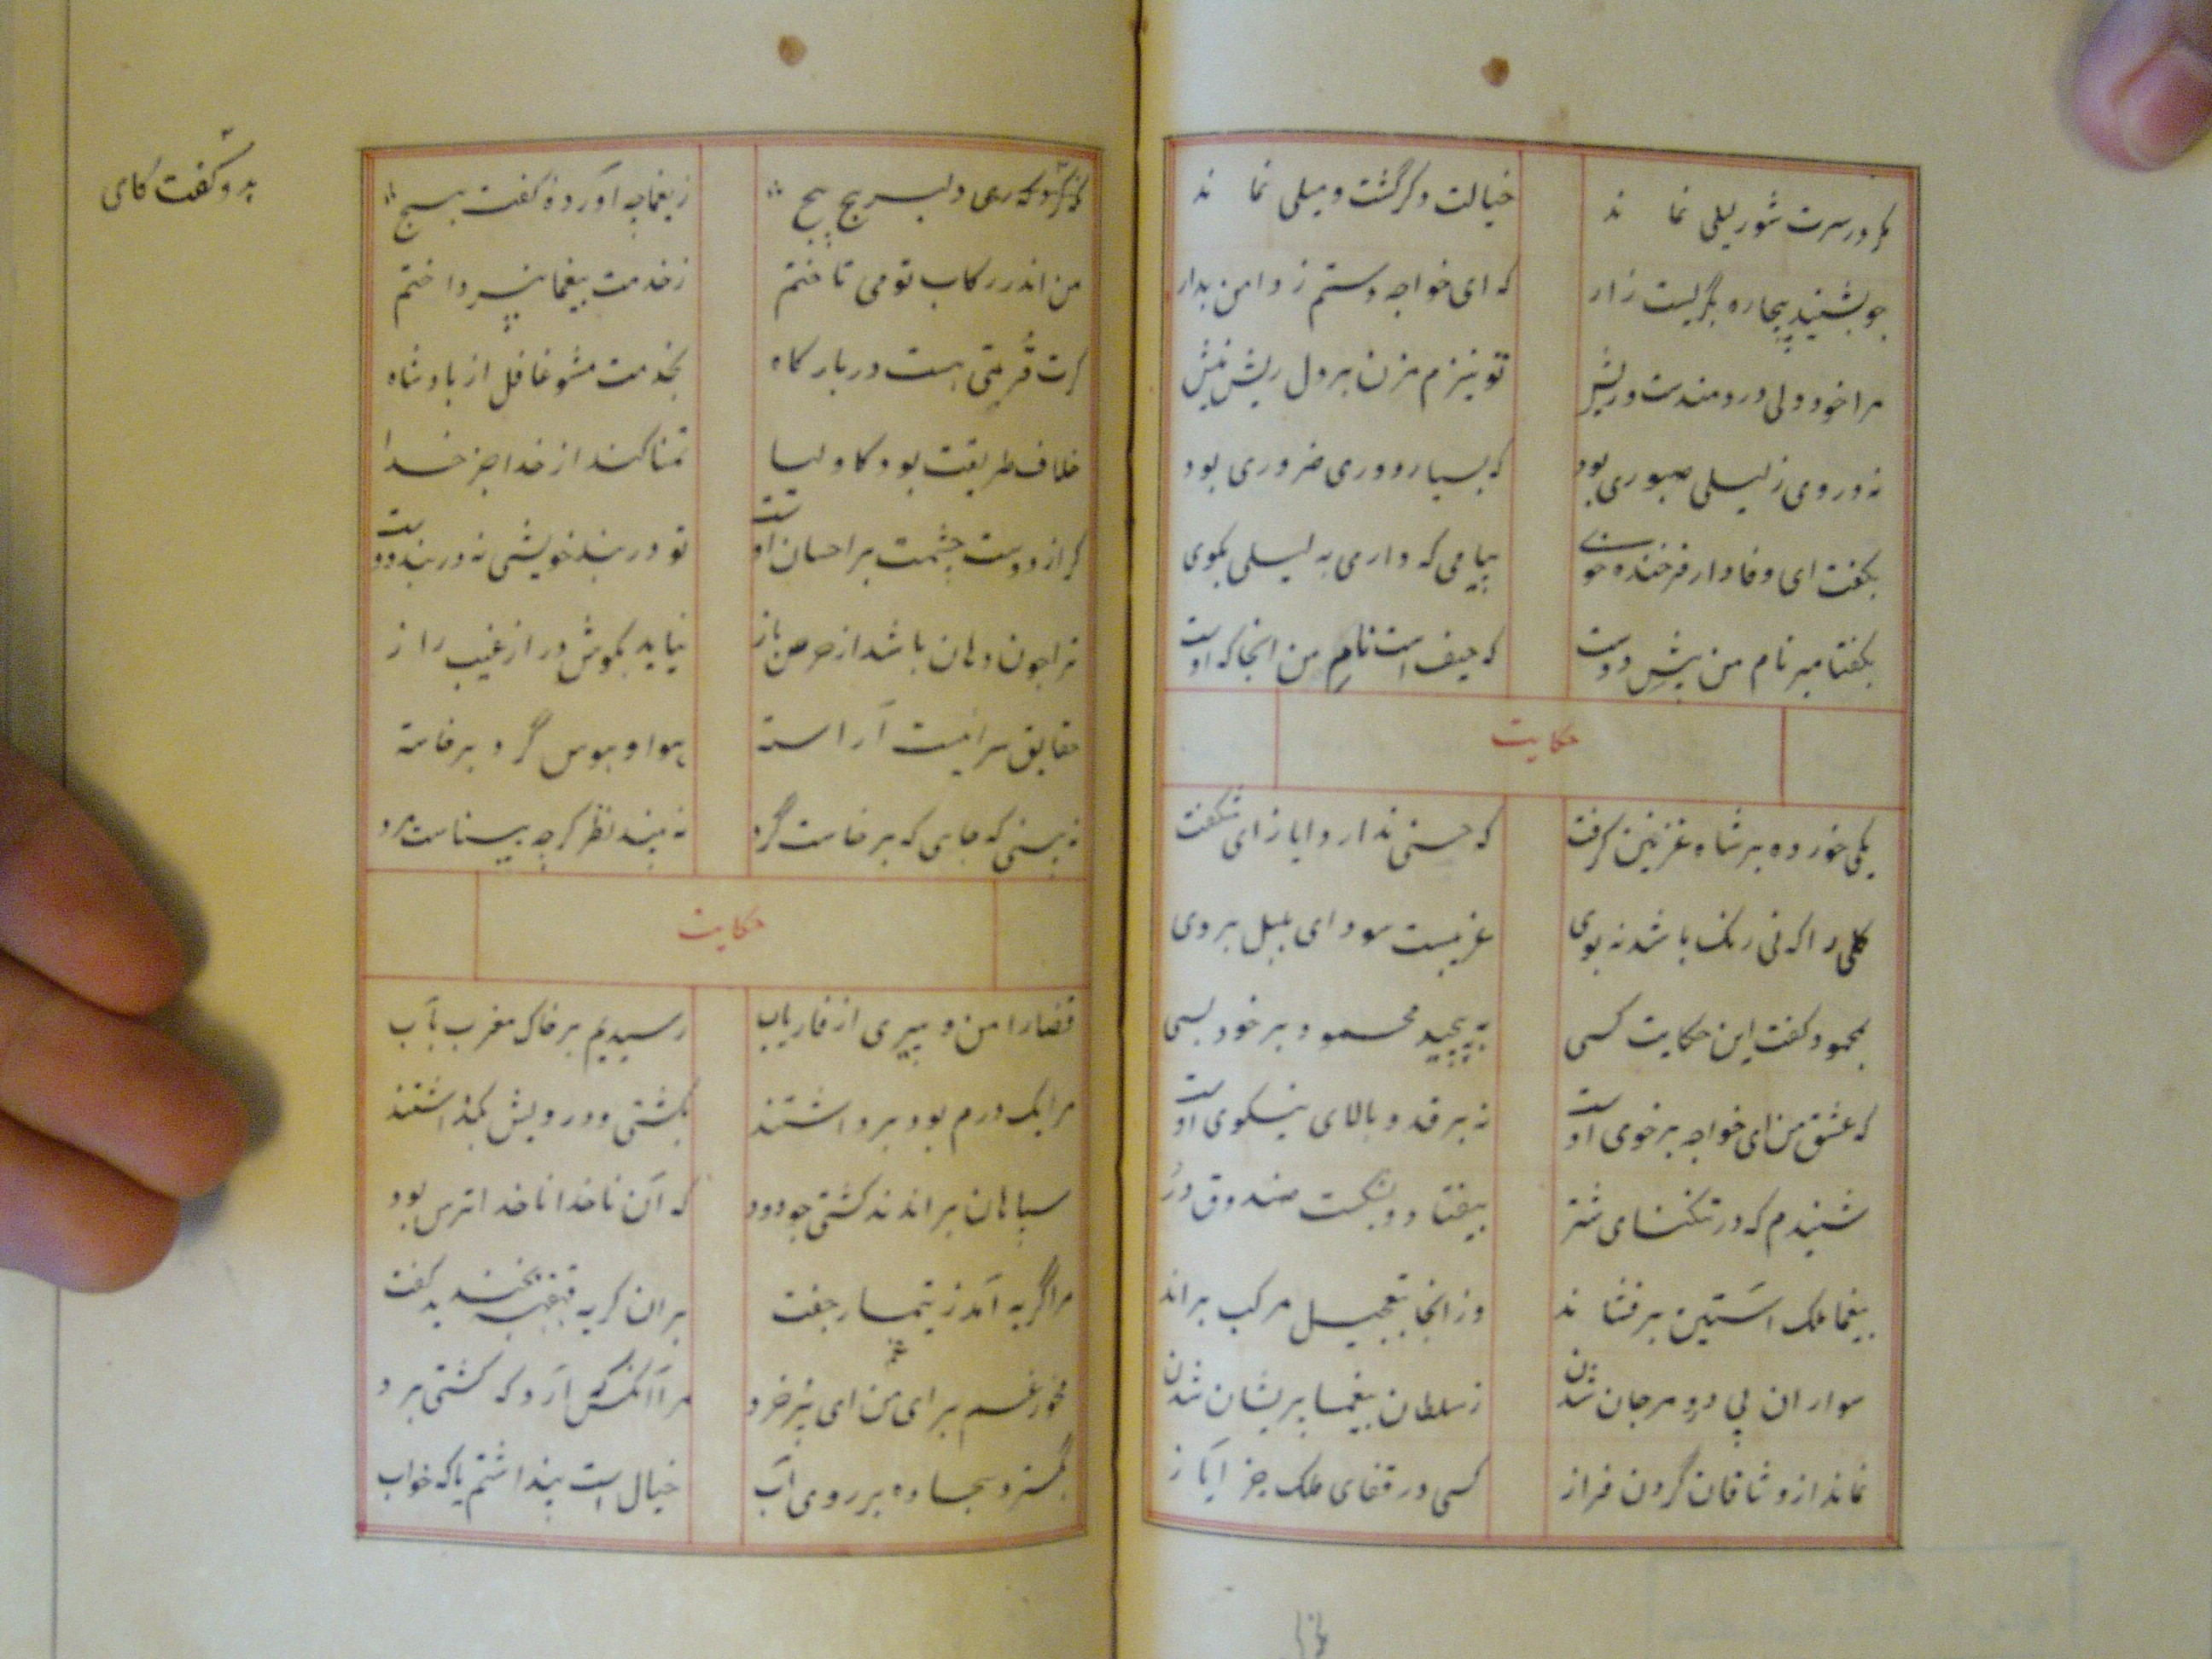 مگر در سرت شور لیلی نماند خیالت دگر گشت و میلی نماند
چو بشنید بیچاره بگریست زار که ای خواجه دستم ز دامن بدار
مرا خود دلی دردمندست و ریش تو نیزم مزن بر دل ریش نیش
نه دوری ز لیلی صبوری بود که بسیار دوری ضروری بود
بگفت ای وفادار فرخنده خوی پیامی که داری به لیلی بگوی
بگفتا مبر نام من پیش دوست که حیف است نام من انجا که اوست
حکایت
یکی خورده بر شاه غزنین گرفت که حسنی ندارد ایاز ای شگفت
گلی را که نی رنگ باشد نه بوی غریبست سودای بلبل بروی
بمحمود گفت این حکایت کسی به پیچید محمود بر خود بسی
که عشق من ای خواجه بر خوی اوست نه بر قد و بالای نیکوی اوست
شنیدم که در تنگنای شتر بیفتاد و بشکست صندوق در
بیغما ملک آستین برفشاند وز انجا بتعجیل مرکب براند
سواران پی در و مرجان شدند ز سلطان بیغما پریشان شدند
نماند از وشاقان گردن فراز کسی در قفای ملک جز ایاز
دلبر پیچ پیچ ز یغما چه آورده گفت هیچ
من اندر رکاب تو می تاختم ز خدمت بیغما نپرداختم
گرت قربتی هست در بارگاه بخدمت مشو غافل از پادشاه
خلاف طریقت بود کاولیا تمنا کنند از خدا جز خدا
گر از دوست چشمت بر احسان اوست تو در بند خویشی نه در بند دوست
ترا چون دهان باشد از حرص باز نیاید بگوش در از غیب راز
حقایق سرائیست آراسته هوا و هوس گرد برخاسته
نه بینی که جای که برخاست گرد نه بیند نظر گرچه بیناست مرد
حکایت
قضا را من و پیری از فاریاب رسیدیم بر خاک مغرب بآب
مرا یک درم بود برداشتند بکشتی و درویش بگذاشتند
سیاهان براندند کشتی چو دود که آن ناخدا ناخدا ترس بود
مرا گریه آمد ز تیمار جفت بران گریه قهقهه بخندید گفت
مخور غم برای من ای پر خرد مرا آنکس آرد که کشتی برد
بگسترد سجاده بر روی آب خیال است پنداشتم یا که خواب
بدو گفت کای